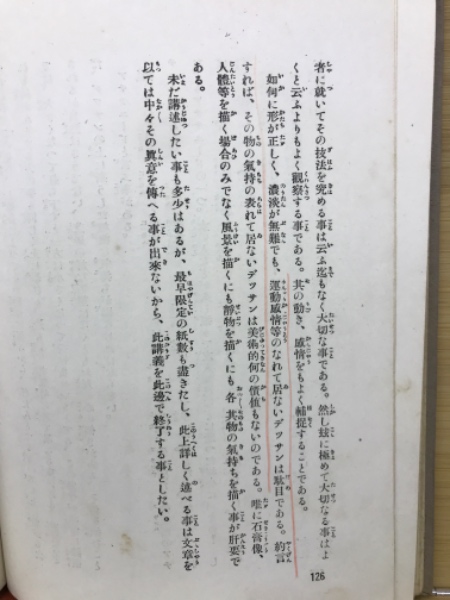 者に就いてその技法を究める事は云ふ迄もなく大切な事である。然し玆に極めて大切なる事はよ
くと云ふよりもよく觀察する事である。其の動き、感情をもよく捕捉することである。
如何に形が正しく、濃淡が無難でも、運動感情等のなれて居ないデッサンは駄目である。約言
すれば、その物の氣持の表れて居ないデッサンは美術的何の價値もないのである。唯に石膏像、
人體等を描く場合のみでなく風景を描くにも靜物を描くにも各其物の氣持ちを描く事が肝要で
ある。
未だ講述したい事も多少はあるが、最早限定の紙數も盡きたし、此上詳しく述べる事は文章を
以ては中々その眞意を傳へる事が出來ないから、此講義を此邊で終了する事としたい。
126